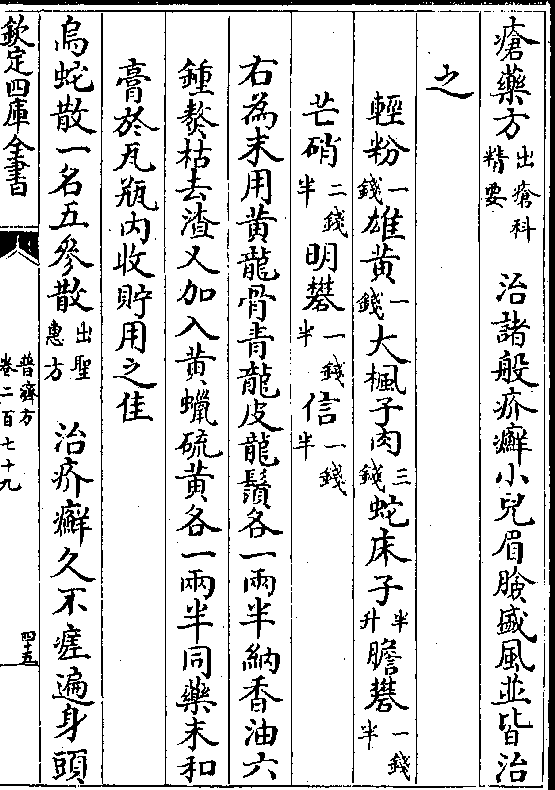 瘡藥方出瘡科精要　治諸般疥癬小兒眉臉盛風並皆治
之
輕粉一錢雄黃一錢大楓子肉三錢蛇床子半升膽礬一錢半
芒硝二錢半明礬一錢半信一錢半
右為末用黃龍骨青龍皮龍鬚各一兩半納香油六
鍾熬枯去渣又加入黃蠟硫黃各一兩半同藥末和
膏於瓦瓶内收貯用之佳
烏蛇散一名五參散出聖惠方　治疥癬久不瘥遍身頭
欽定四庫全書
普濟方
卷二百七十九
四十五